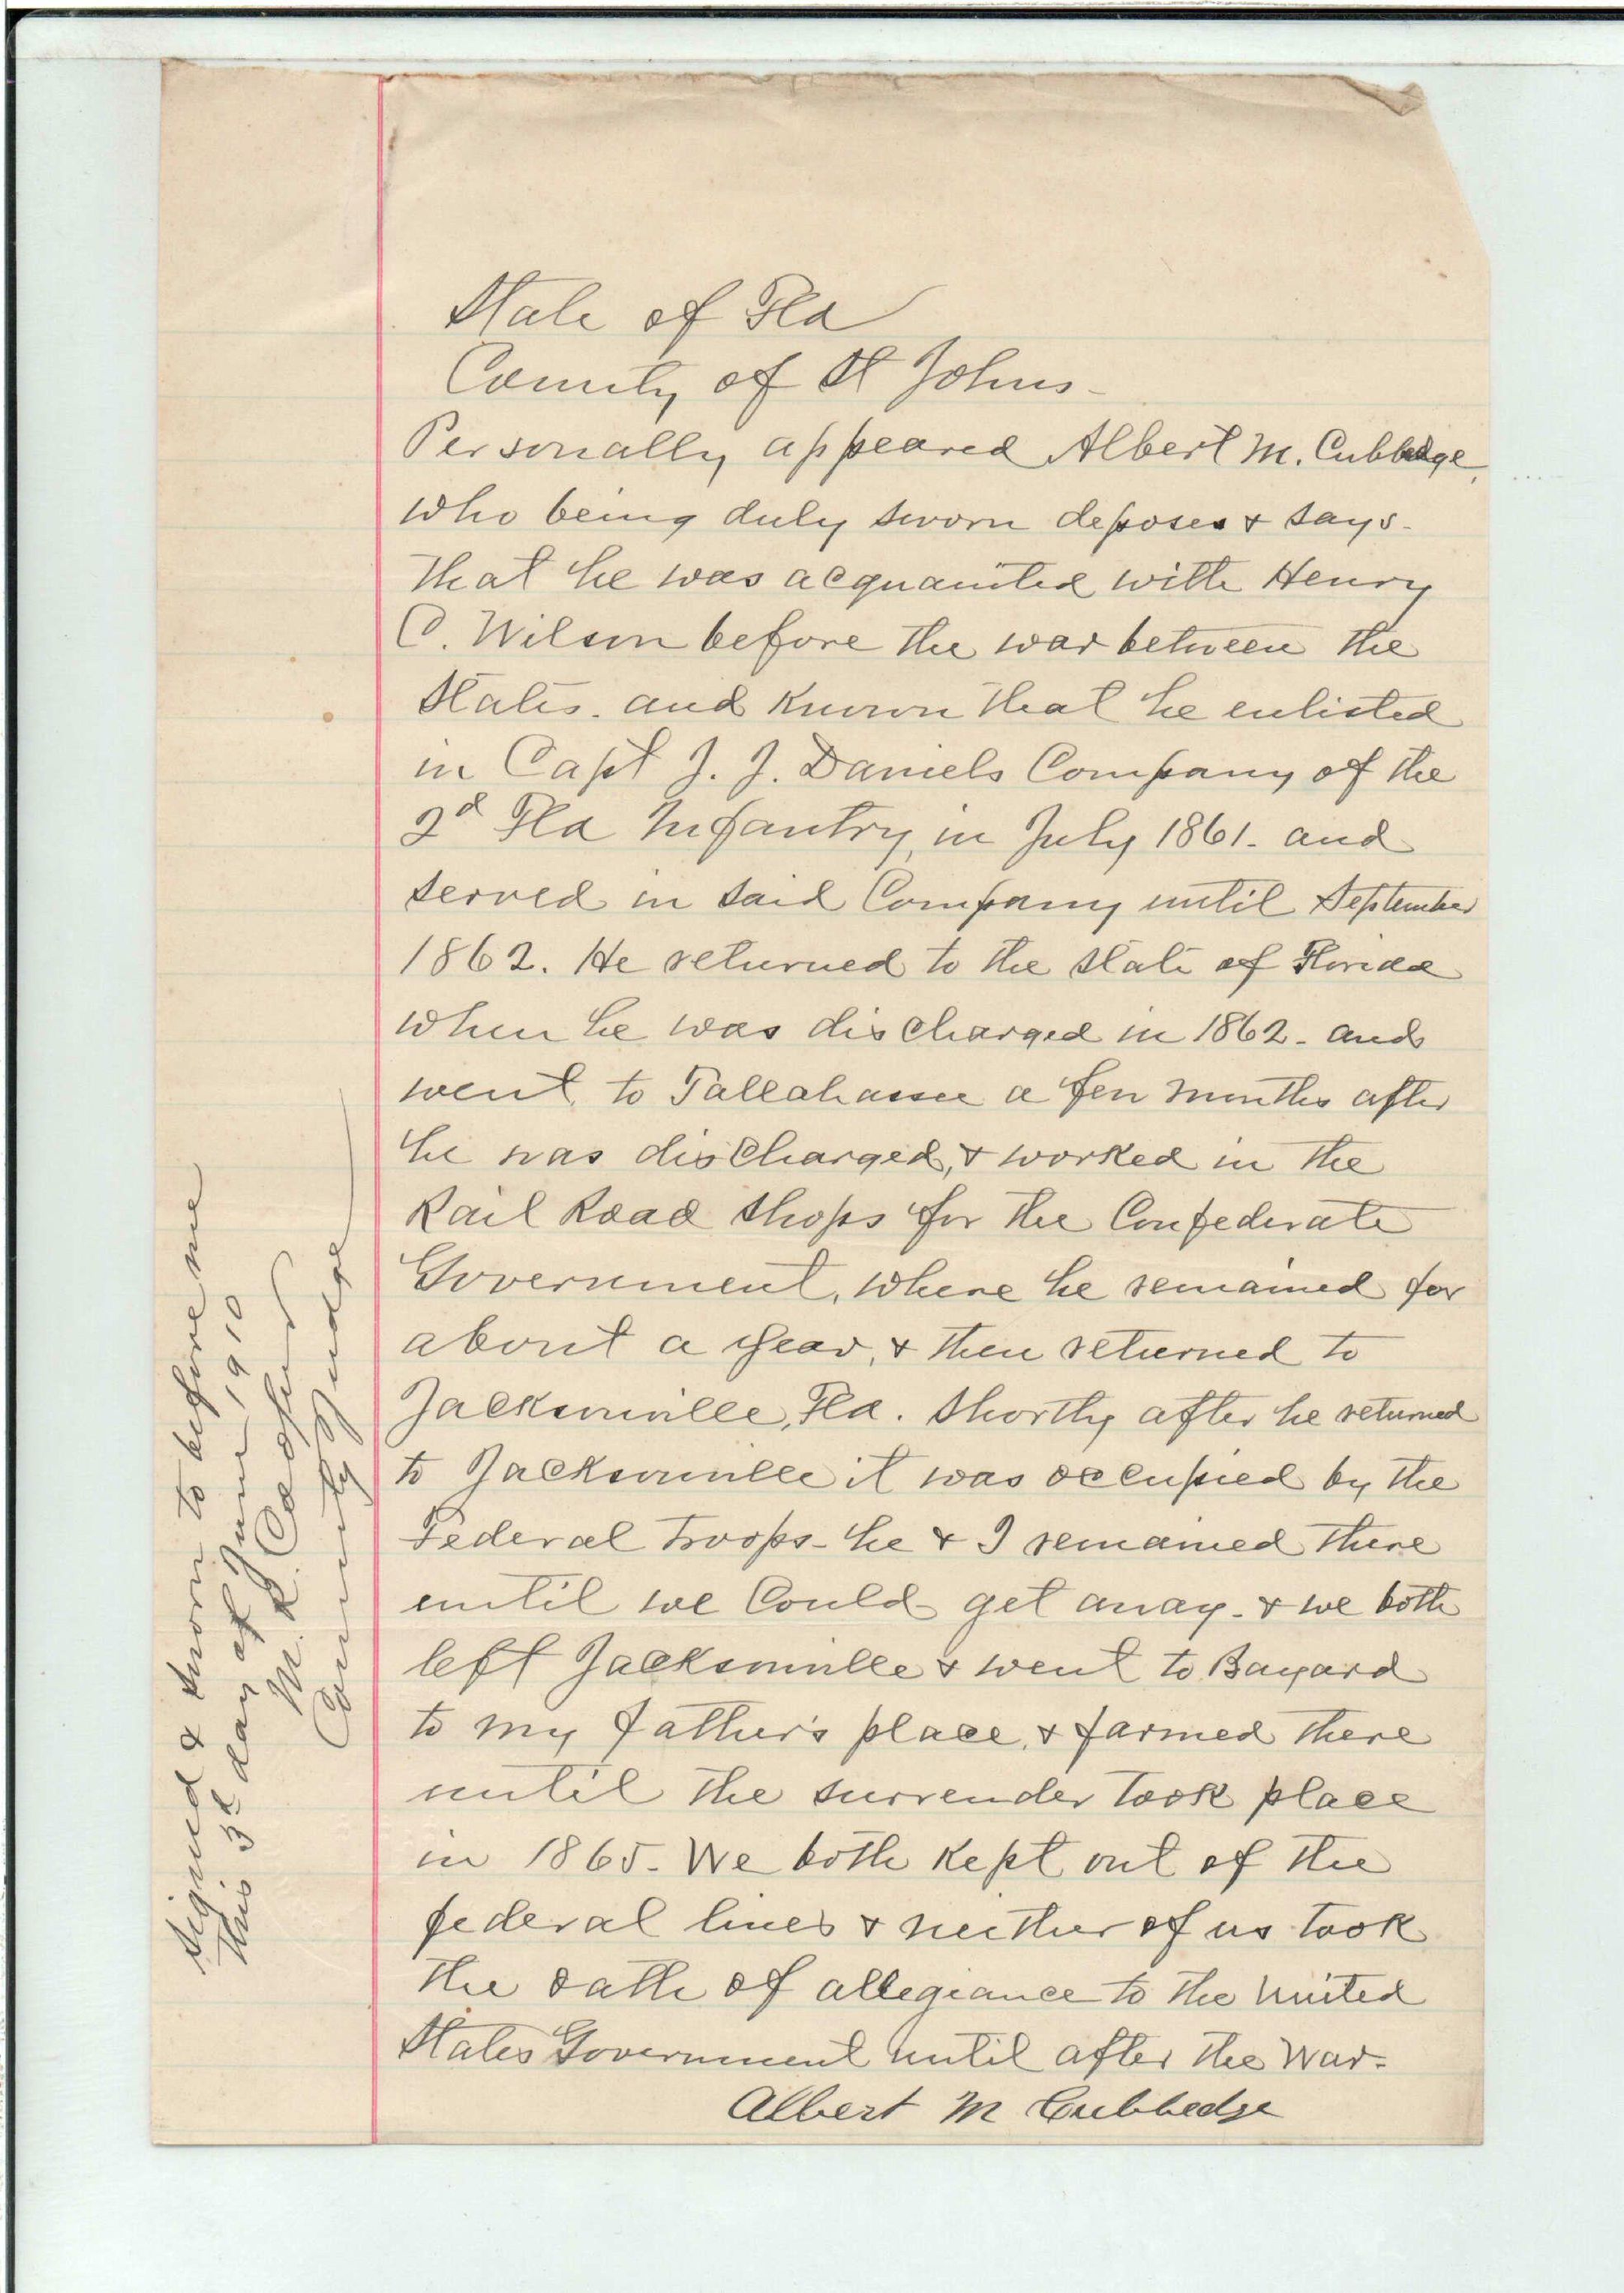 State of Fla
County of St Johns -
Personally appeared Albert M. Cubbedge,
who being duly sworn deposes & says -
That he was acquainted with Henry
C. Wilson before the war between the
States. and known that he enlisted
in Capt J. J. Daniels Company of the
2d Fla Infantry, in July 1861 - and
served in said Company until September
1862. He returned to the state of Florida
when he was discharged in 1862 - and
went to Tallahassee a few months after
he was discharged, & worked in the
Rail Road shops for the Confederate
Government, where he remained for
about a year, & then returned to
Jacksonville, Fla. Shortly after he returned
to Jacksonville it was occupied by the
Federal troops - he & I remained there
until we could get away - & we both
left Jacksonville & went to Bayard
to my father's place, & farmed there
until the surrender took place
in 1865 - We both kept out of the
federal lines & neither of us took
the oath of allegiance to the United
States Government until after the War -
Albert M Cubbedge
Signed & sworn to before me
this 3d day of June 1910
M. R. Cooper
County Judge